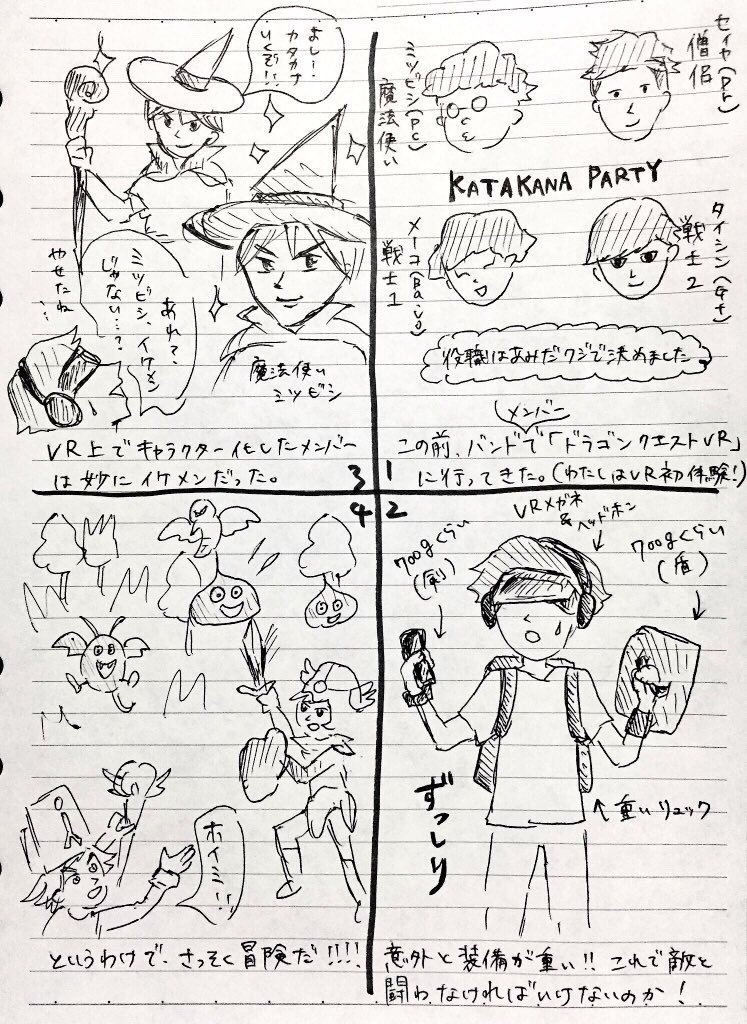 セイヤ(Dr)
僧侶
ミツビシ(Pc)
魔法使い
KATAKANA PARTY
タイシン(Gt)
戦士2
メーコ(Ba,Vo)
戦士1
役職はあみだクジで決めました
メンバー
この前、バンドで「ドラゴンクエストVR」
に行ってきた。(わたしはVR初体験!)
1
2
VRメガネ
&ヘッドホン
700gくらい
(剣)
700gくらい
(盾)
ずっしり
↑重いリュック
意外と装備が重い!! これで敵と
闘わなければいけないのか!
よしー!
カタカナ
いくぞ!!
あれ?
ミツビシ、イケメン
じゃない…?
やせたね…
魔法使い
ミツビシ
VR上でキャラクター化したメンバー
は妙にイケメンだった。
3
4
ホイミ!!
というわけで、さっそく冒険だ!!!!